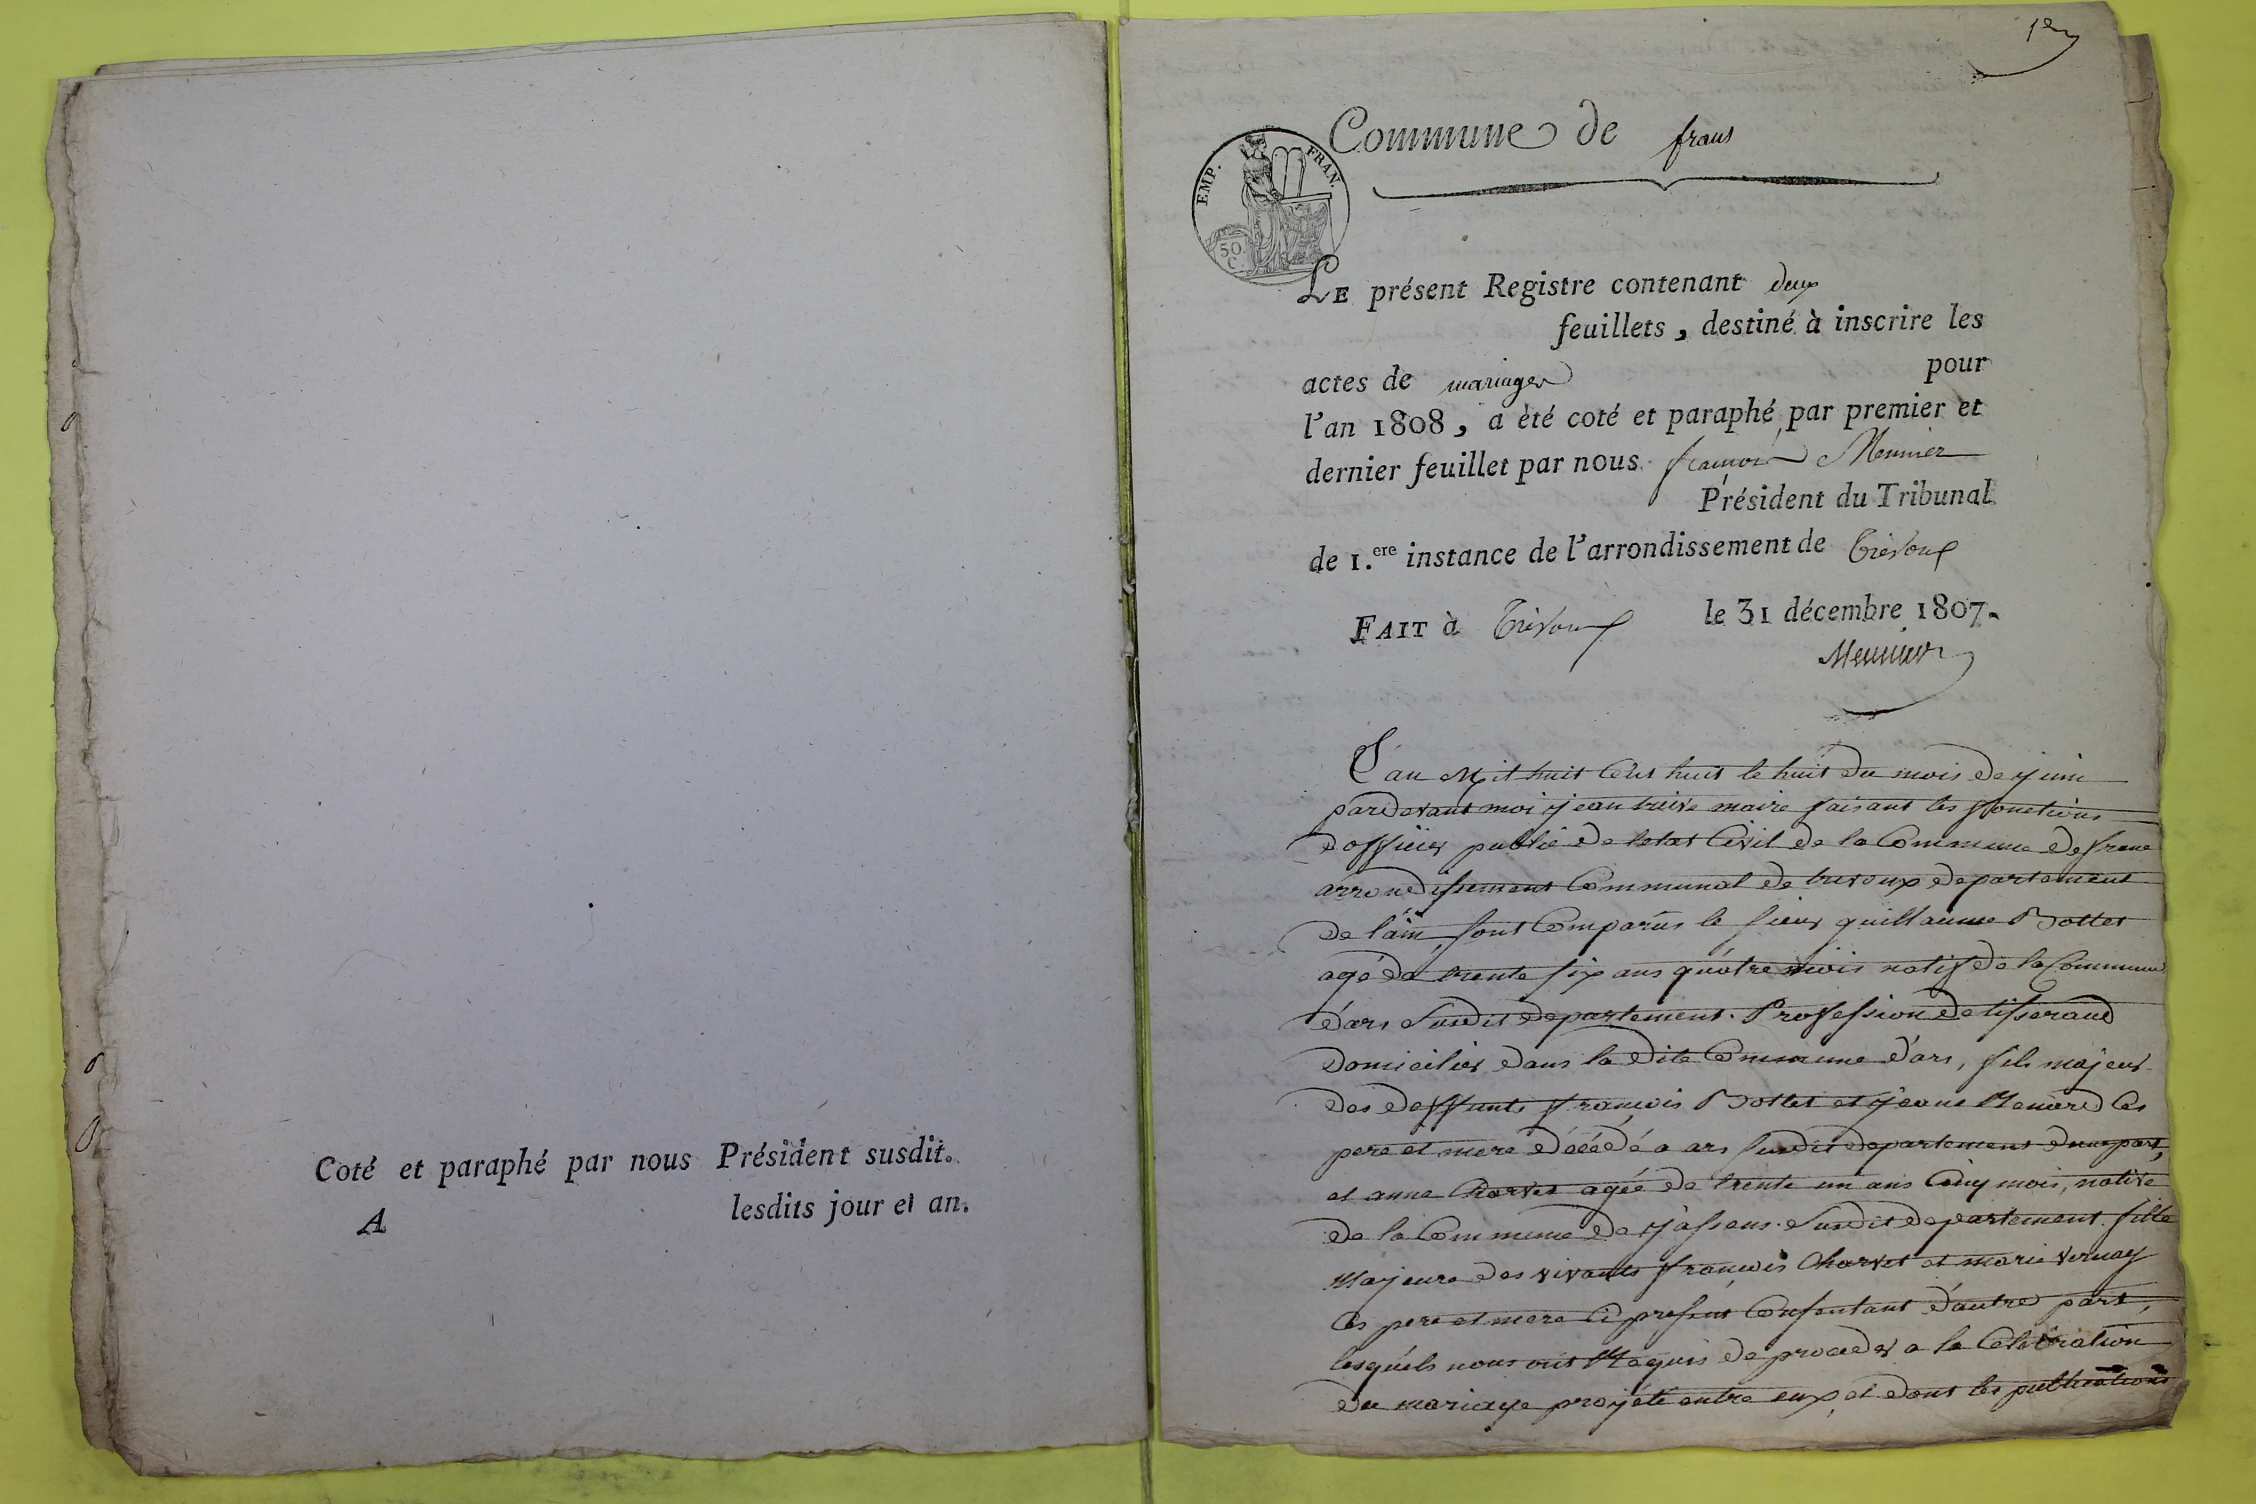 Coté et paraphé par nous Président susdit.
A lesdits jour et an.
1er
Commune de frans
EMP. FRAN.
50 C.
LE présent Registre contenant deux
feuillets, destiné à inscrire les
actes de mariages pour
l'an 1808, a été coté et paraphé par premier et
dernier feuillet par nous françois Meunier
Président du Tribunal
de 1.ere instance de l'arrondissement de Trévoux
FAIT à Trévoux le 31 décembre 1807.
Meunier
L'an Mil huit Cent huit le huit du mois de juin
pardevant moi jean maire faisant les fonctions
d'officier public de letat Civil de la Commune de frans
arrondissement Communal de trevoux departement
de l'ain, sont Comparus le sieur guillaume Bottet
agé de trente six ans quatre mois natif de la Commune
d'ars susdit departement. Profession de tisserand
domicilier dans la dite Commune d'ars, fils majeur
des deffunts françois Bottet et jeane Renard Ces
pere et mere décédé a ars susdit departement dune part,
et anne Charvet agée de trente un ans Cinq mois, native
de la Commune de jassens susdit departement. fille
Majeure des vivants françois Charvet et marie Vernay
Ces pere et mere Ci present Consentant d'autre part,
lesquels nous ont Requis de proceder a la Celebration
du mariage projeté entre eux, et dont les publications